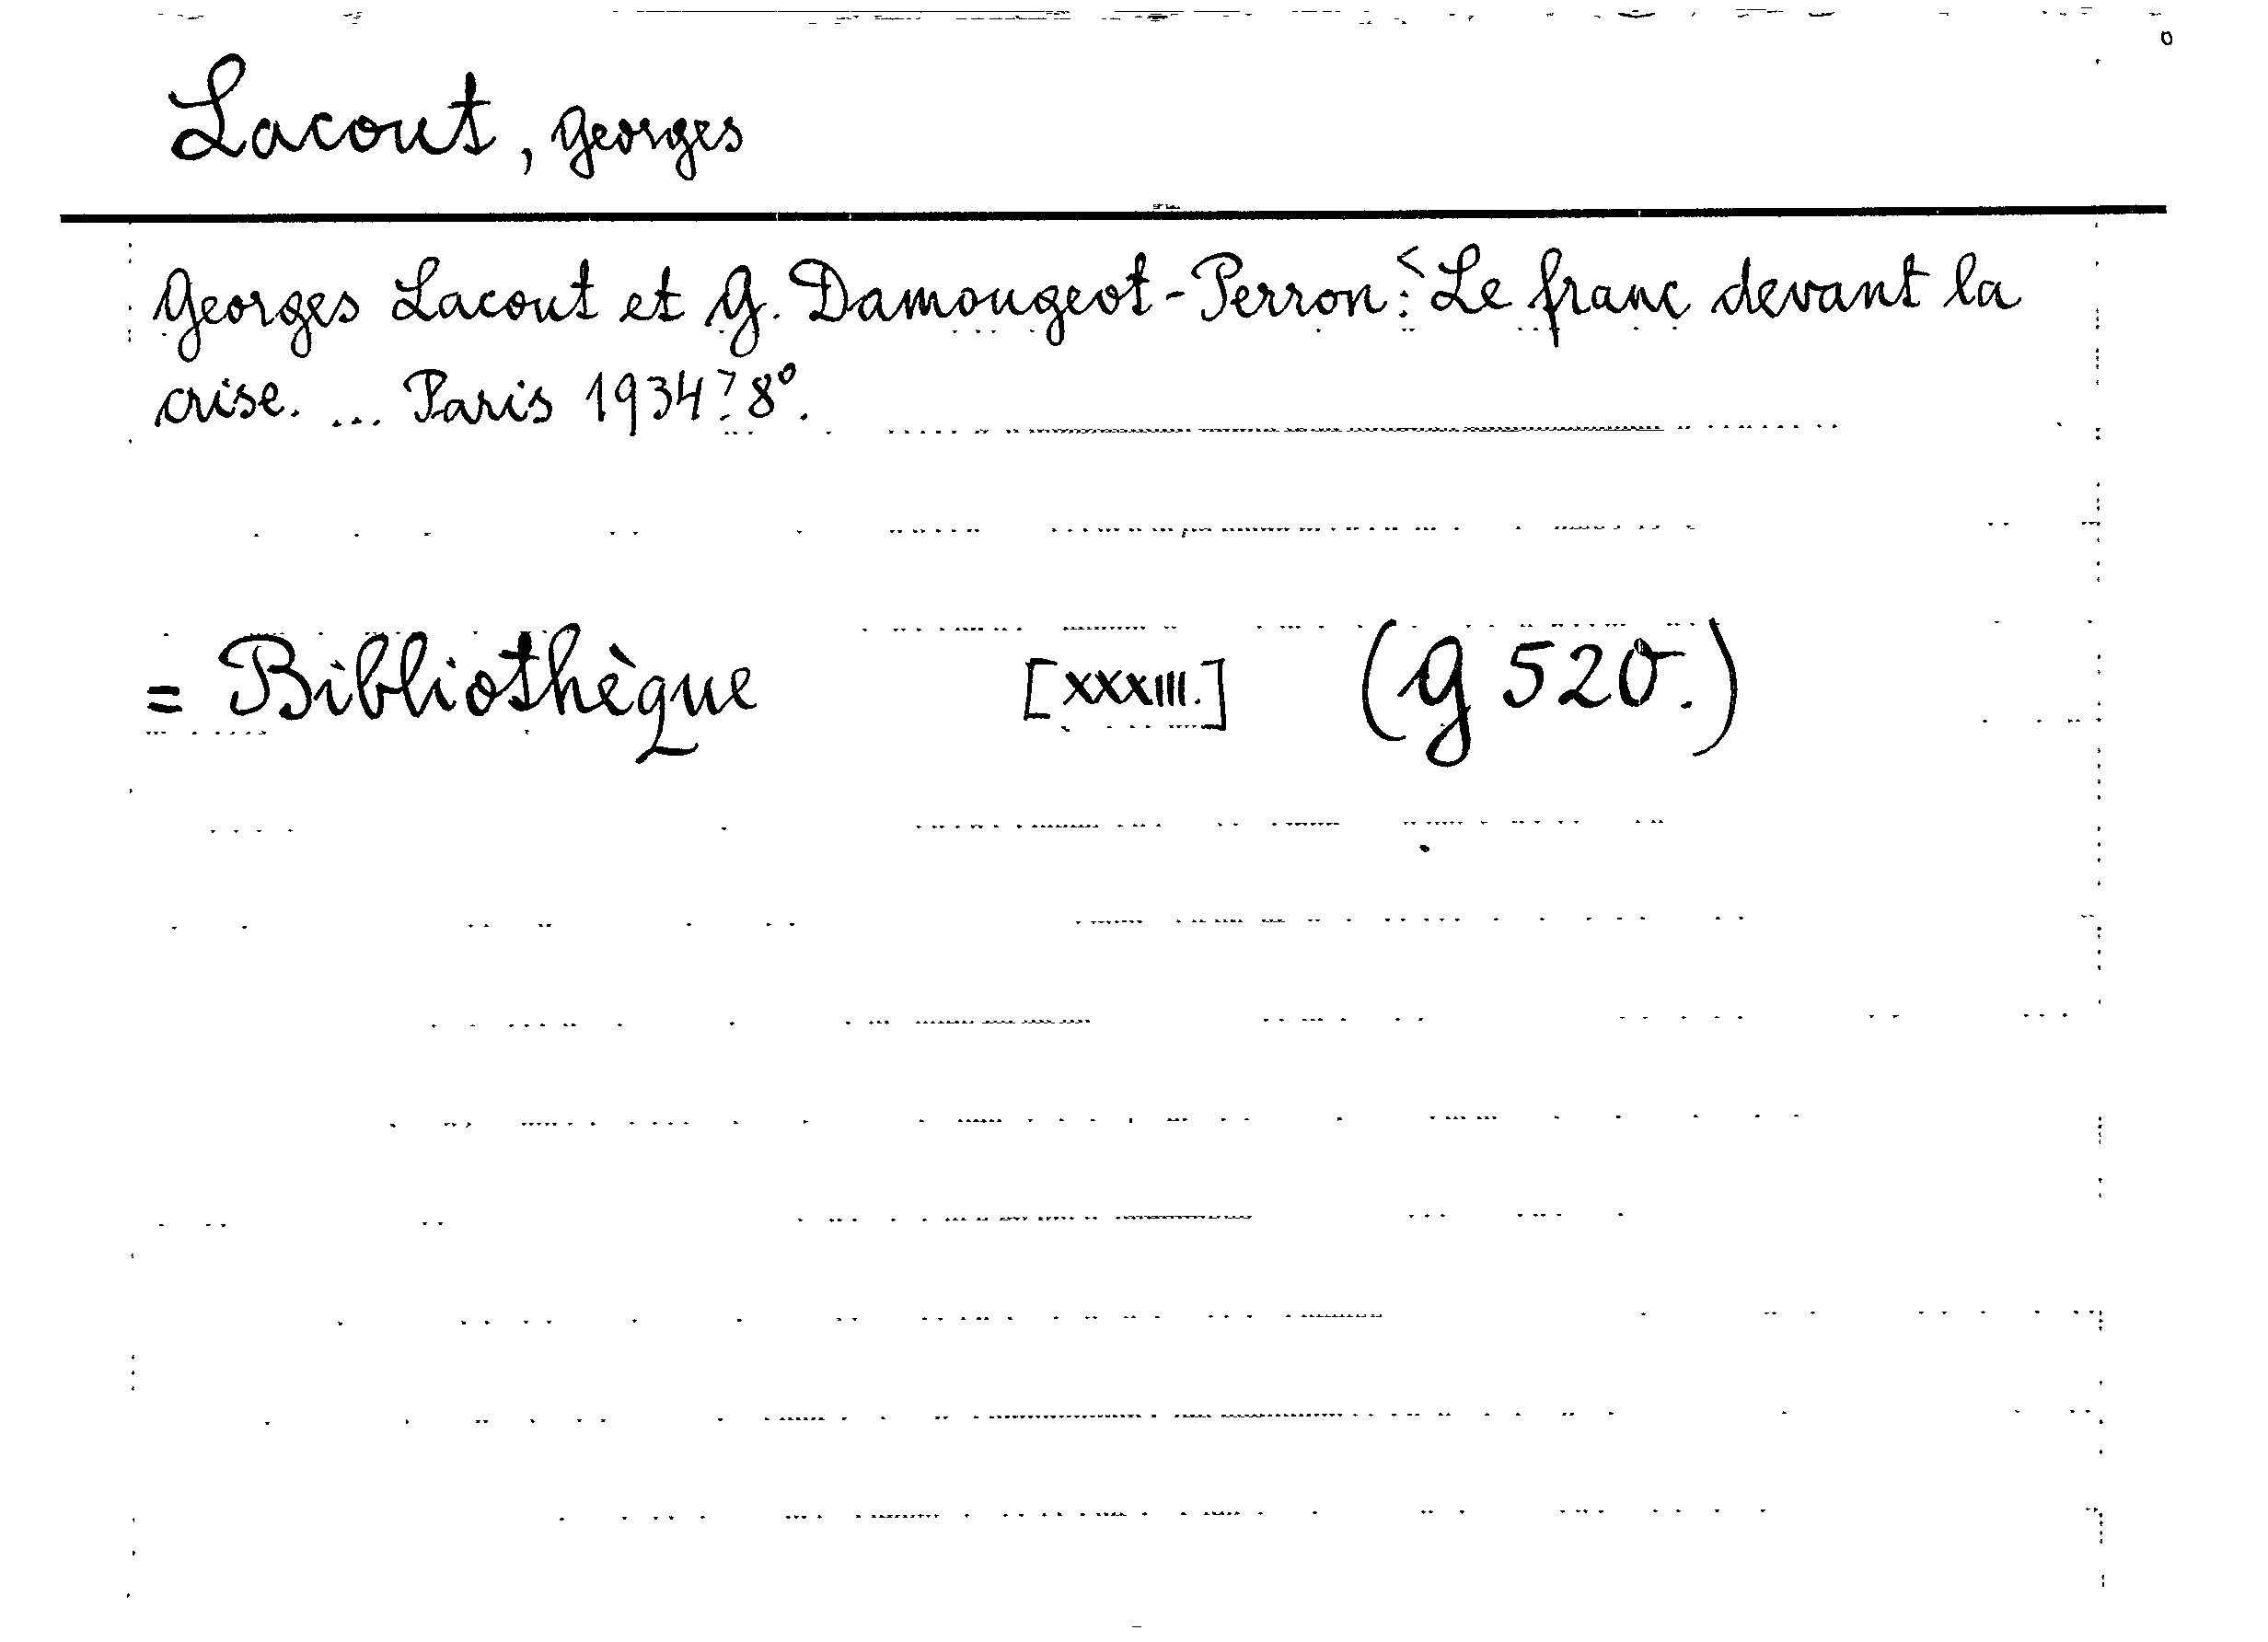 Lacout, Georges
Georges Lacout et G. Damougeot-Perron: <Le franc devant la
crise. ... Paris 1934> 8°.
= Bibliothèque [XXXIII.] (G 520.)